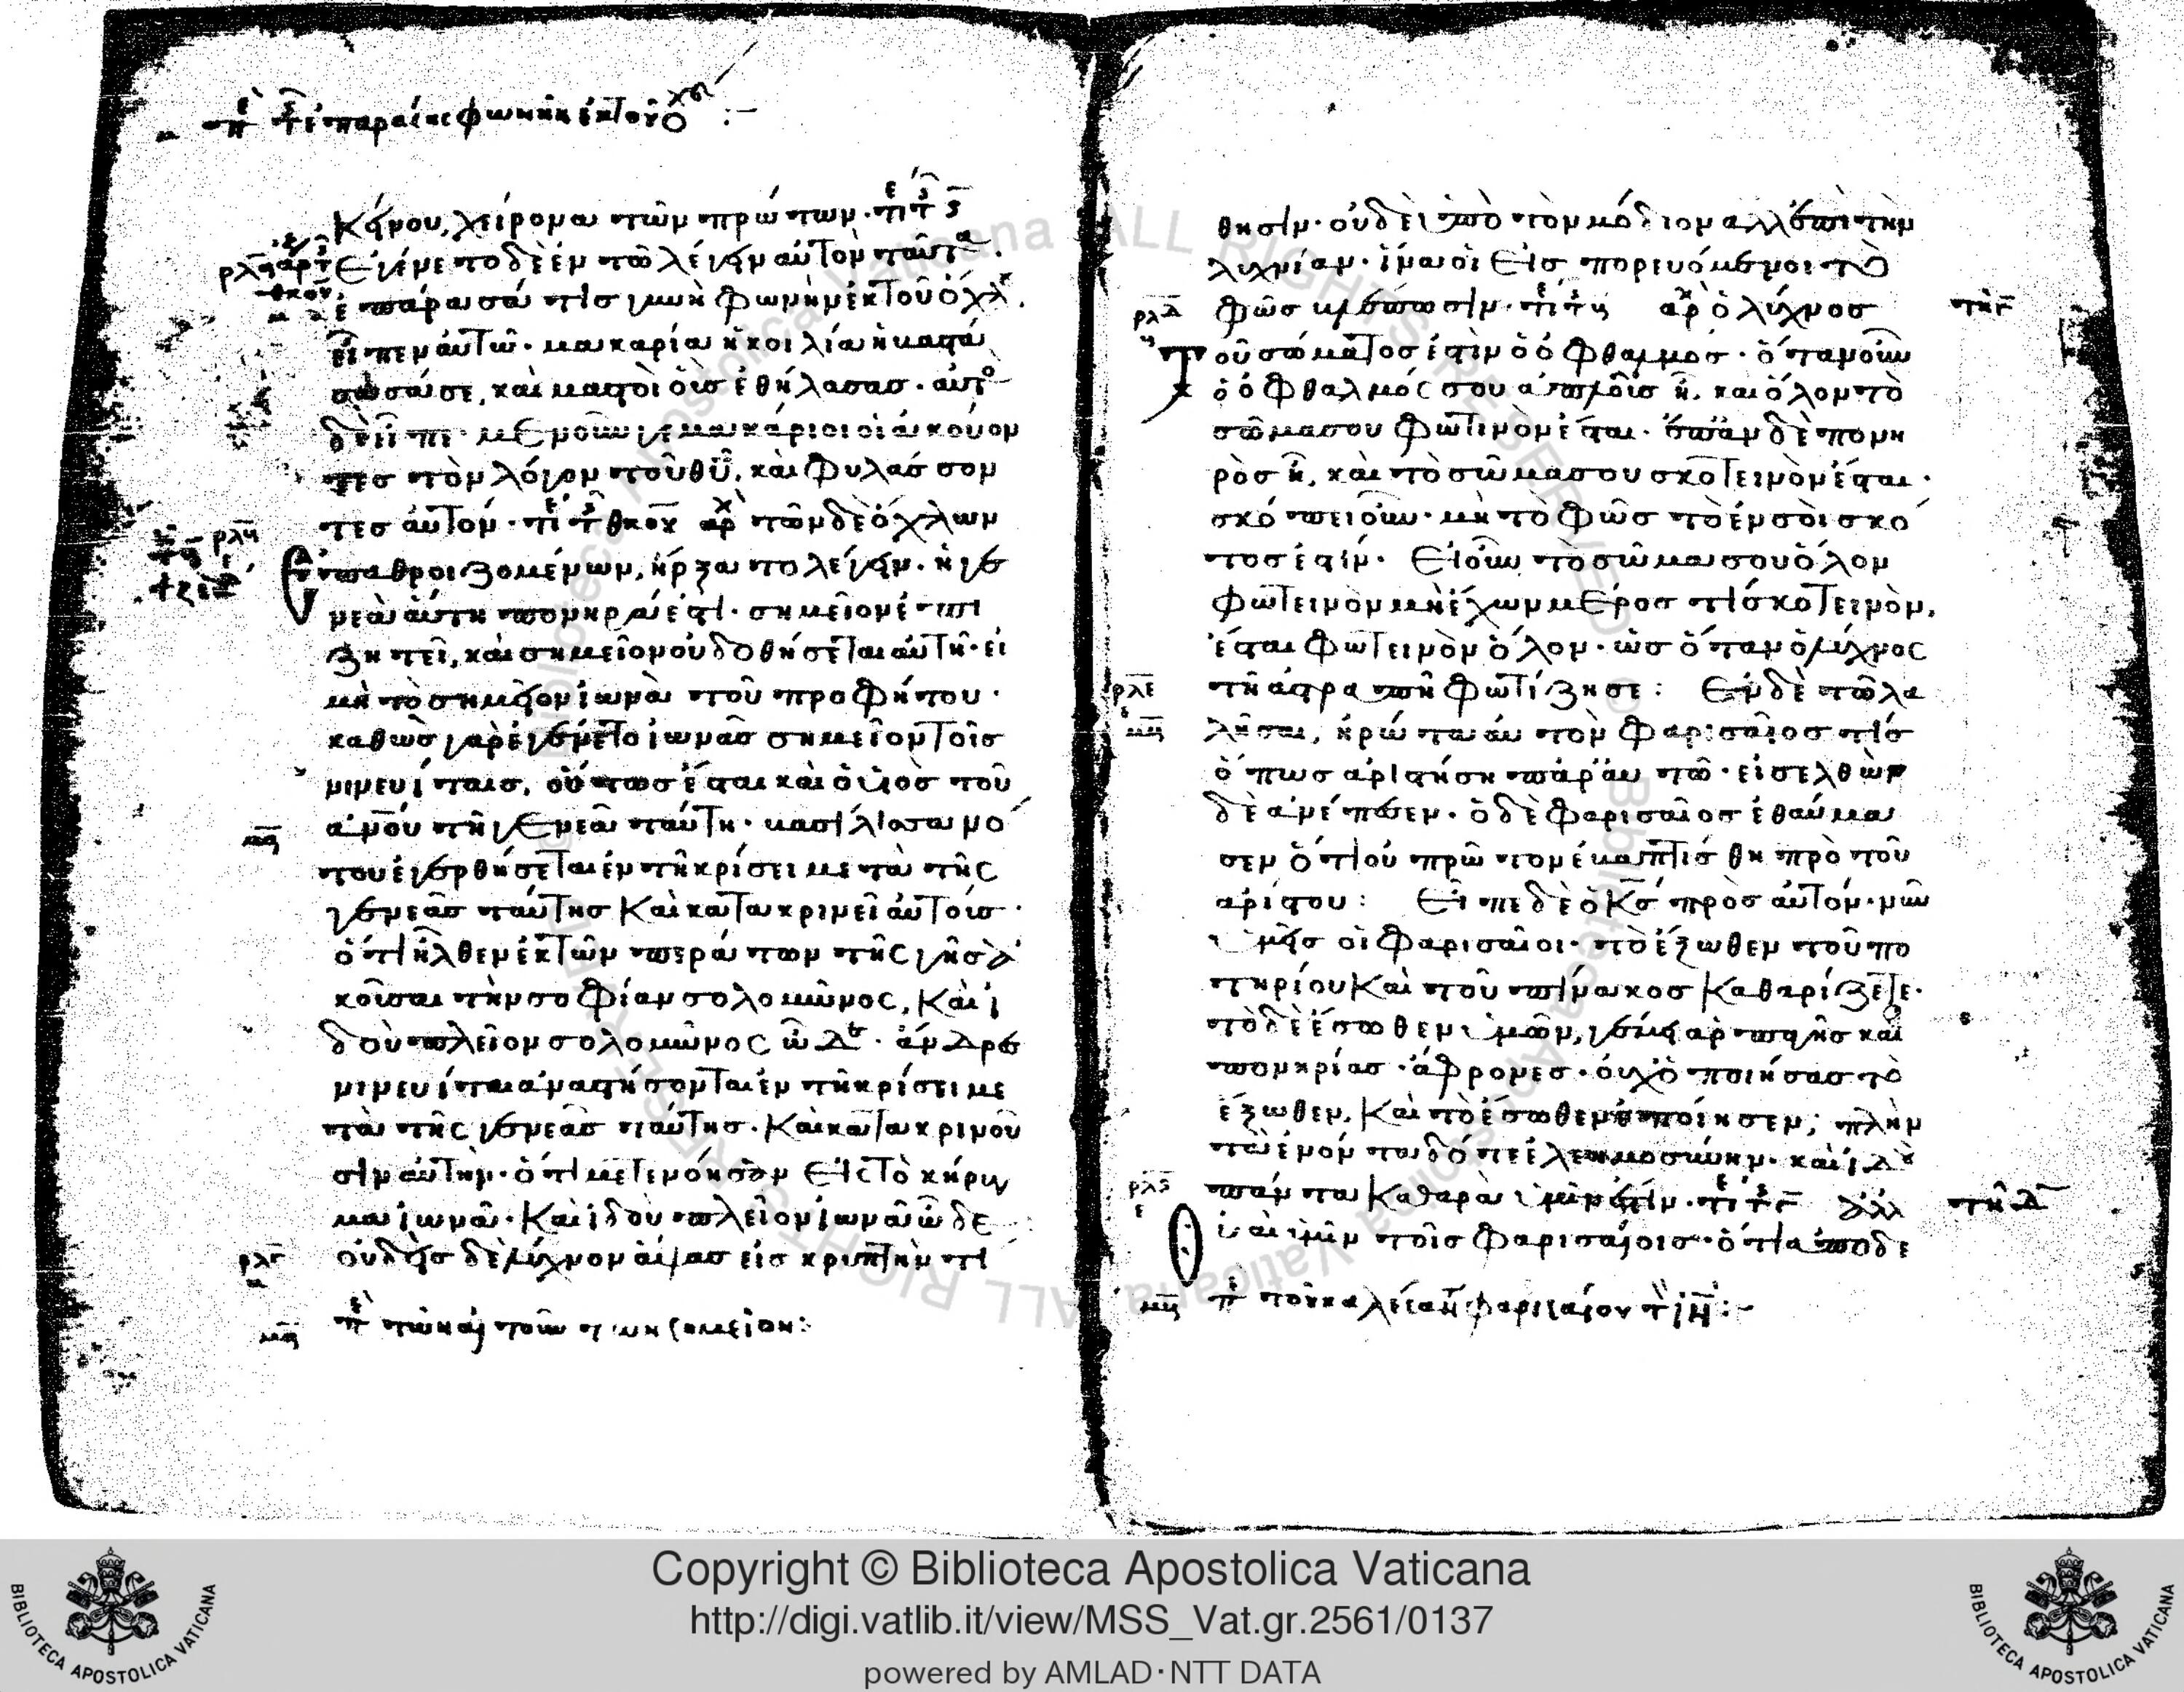 κείνου, χείρονα τῶν πρώτων·
Ἐγένετο δὲ ἐν τῶ λέγειν αὐτὸν ταῦτα
ἐπάρασά τις γυνὴ φωνὴν ἐκ τοῦ ὄχλ
εἶπεν αὐτῶ· μακαρία ἡ κοιλία ἡ βαστά
σασά σε, καὶ μαστοὶ οὓς ἐθήλασας· αὐτὸ
δὲ εἶπε· μενοῦνγε μακάριοι οἱ ἀκούον
τες τὸν λόγον τοῦ θῦ, καὶ φυλάσσον
τες αὐτόν· τῶν δὲ ὄχλων
ἐπαθροιζομένων, ἤρξατο λέγειν· ἡ γε
νεὰ αὕτη πονηρά ἐστι· σημεῖον ἐπι
ζητεῖ, καὶ σημεῖον οὐ δοθήσεται αὐτῆ· εἰ
μὴ τὸ σημεῖον ἰωνᾶ τοῦ προφήτου·
καθὼς γὰρ ἐγένετο ἰωνᾶς σημεῖον τοῖς
νινευίταις, οὕτως ἔσται καὶ ὁ υἱὸς τοῦ
ἀνου τῆ γενεᾶ ταύτη· βασίλισσα νό
του ἐγερθήσεται ἐν τῆ κρίσει μετὰ τῆς
γενεᾶς ταύτης καὶ κατακρινεῖ αὐτούς·
ὅτι ἦλθεν ἐκ τῶν περάτων τῆς γῆς ἀ
κοῦσαι τὴν σοφίαν σολομῶνος, καὶ ἰ
δοὺ πλεῖον σολομῶνος ὧδε· ἄνδρε
νινευίται ἀναστήσονται ἐν τῆ κρίσει με
τὰ τῆς γενεᾶς ταύτης· καὶ κατακρινοῦ
σιν αὐτήν· ὅτι μετενόησαν εἰς τὸ κήρυγ
μα ἰωνᾶ· καὶ ἰδοὺ πλεῖον ἰωνᾶ ὧδε
ρλγ οὐδεὶς δὲ λύχνον ἅψας εἰς κρυπτὴν τι
θησιν· οὐδὲ ὑπὸ τὸν μόδιον ἀλλ' ἐπὶ τὴν
λυχνίαν· ἵνα οἱ εἰσπορευόμενοι τὸ
ρλδ φῶς βλέπωσιν· ὁ λύχνος
τοῦ σώματός ἐστιν ὁ ὀφθαλμός· ὅταν οὖν
ὁ ὀφθαλμός σου ἁπλοῦς ῆ, καὶ ὅλον τὸ
σῶμα σου φωτινὸν ἔσται· ἐπὰν δὲ πονη
ρὸς ῆ, καὶ τὸ σῶμα σου σκοτεινὸν ἔσται·
σκόπει οὖν· μὴ τὸ φῶς τὸ ἐν σοὶ σκό
τος ἐστίν· Εἰ οὖν τὸ σῶμα σου ὅλον
φωτεινὸν μὴ ἔχων μέρος τι σκοτεινὸν,
ἔσται φωτεινὸν ὅλον· ὡς ὅταν ὁ λύχνος
ρλε τῆ ἀστραπῆ φωτίζη σε: Ἐν δὲ τῶ λα
λῆσαι, ἠρώτα αὐτὸν φαρισαῖός τίς
ὅπως ἀριστήση παρ' αὐτῶ· εἰσελθὼν
δὲ ἀνέπεσεν· ὁ δὲ φαρισαῖος ἐθαύμα
σεν ὅτι οὐ πρῶτον ἐβαπτίσθη πρὸ τοῦ
ἀρίστου: Εἶπε δὲ ὁ κς πρὸς αὐτόν· νῦν
ὑμεῖς οἱ φαρισαῖοι· τὸ ἔξωθεν τοῦ πο
τηρίου καὶ τοῦ πίνακος καθαρίζετε·
τὸ δὲ ἔσωθεν ὑμῶν, γέμει ἁρπαγῆς καὶ
πονηρίας· ἄφρονες· οὐχ ὁ ποιήσας τὸ
ἔξωθεν, καὶ τὸ ἔσωθεν ἐποίησεν; πλὴν
τὰ ἐνόντα δότε ἐλεημοσύνην· καὶ ἰδὲ
ρλς πάντα καθαρὰ ὑμῖν ἐστίν·
Οὐαὶ ὑμῖν τοῖς φαρισαίοις· ὅτι ἀποδε
Copyright © Biblioteca Apostolica Vaticana
http://digi.vatlib.it/view/MSS_Vat.gr.2561/0137
powered by AMLAD·NTT DATA
BIBLIOTECA APOSTOLICA VATICANA
BIBLIOTECA APOSTOLICA VATICANA